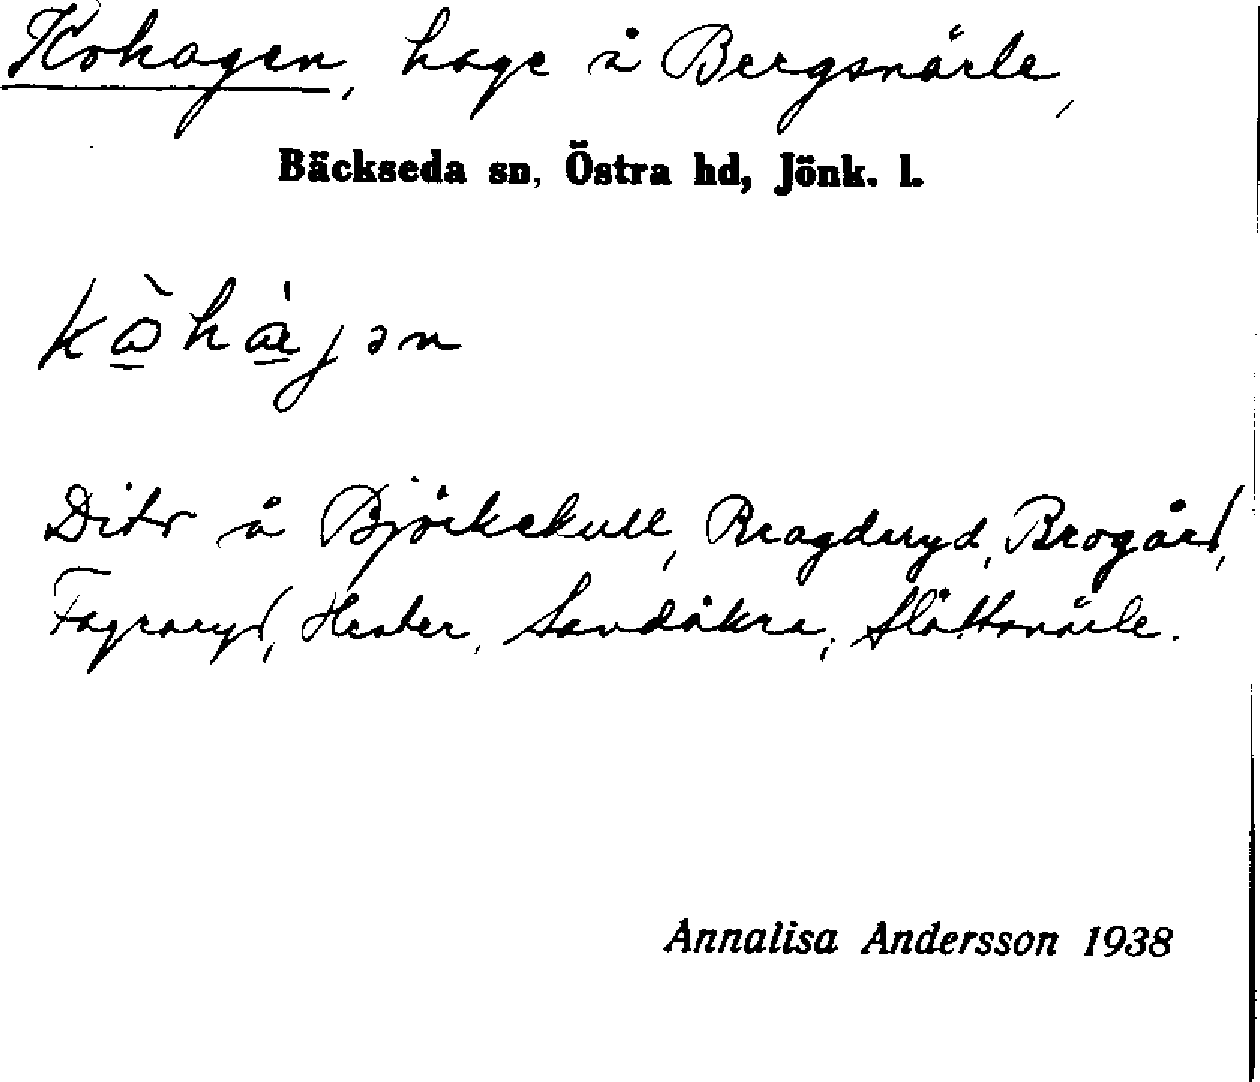 Kohagen, hage å Bergsnärle,
Bäckseda sn, Östra hd, Jönk. l.
Dito å Björkekull, Bragderyd, Brogård,
Fagraryd, Hester, Sandåkra, Slättsnärle.
Annalisa Andersson 1938